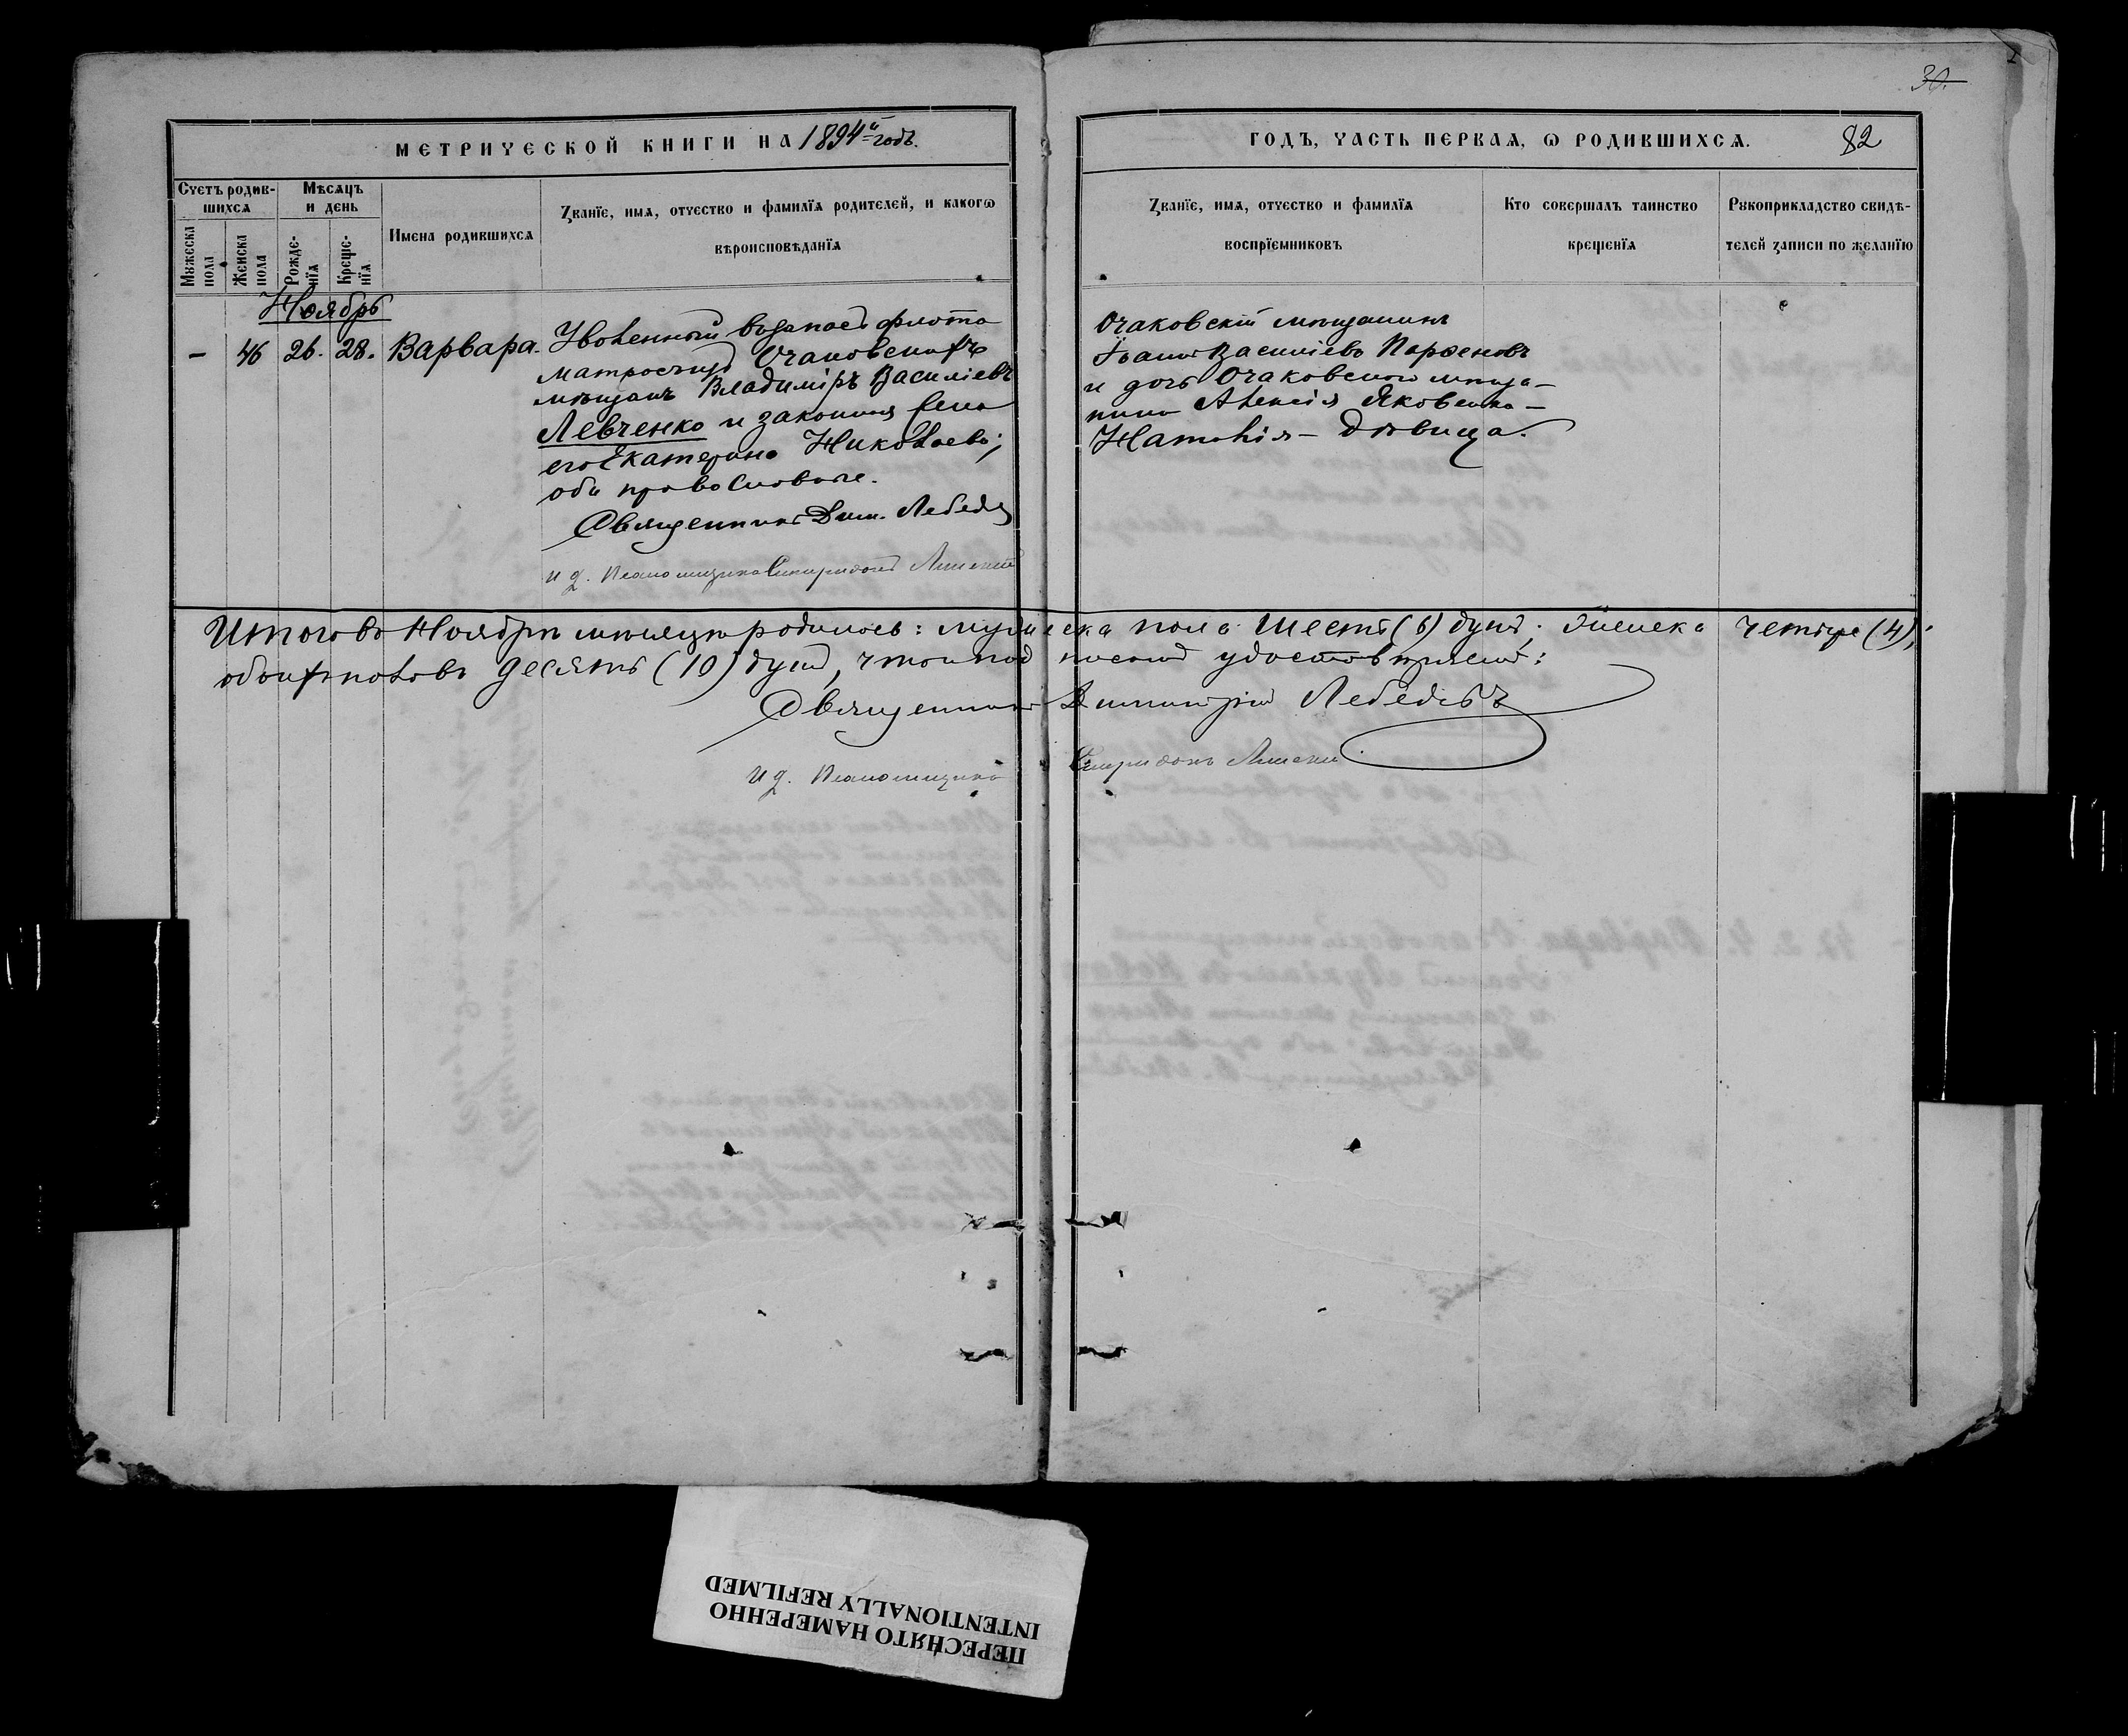 30.
МЕТРИЧЕСКОЙ КНИГИ НА 1894й годъ.
ГОДЪ, ЧАСТЬ ПЕРВАѦ, Ѡ РОДИВШИХСѦ. 82
Счетъ родив-
шихсѧ
Мѣсѧцъ
и день
Мꙋжеска
пола
Женска
пола
Рожде-
нїѧ
Креще-
нїѧ
Имена родившихсѧ
Званїе, имѧ, отчество и фамилїѧ родителей, и какогѡ
вѣроисповѣданїѧ
Званїе, имѧ, отчество и фамилїѧ
воспрїемниковъ
Кто совершалъ таинство
крещенїѧ
Рꙋкоприкладство свидѣ-
телей записи по желанїю
Ноябрь
– 46 26. 28. Варвара.
Уволенный въ запасъ флота
матросъ изъ Очаковскихъ
мѣщанъ Владиміръ Василіевъ
Левченко и законная жена
его Екатерина Николаева;
оба православные.
Священникъ Дим. Лебедевъ
и д. Псаломщика Спиридонъ
Очаковскій мѣщанинъ
Іоаннъ Василіевъ Парѳеновъ
и дочь Очаковскаго мѣща-
нина Алексія Яковенко –
Наталія – дѣвица.
Итого въ Ноябрѣ мѣсяцѣ родилось: мужеска пола шесть (6) душъ; женска четыре (4);
обоихъ половъ десять (10) душъ, что и подписомъ удостовѣряемъ:
Священникъ Димитрій Лебедевъ
и д. Псаломщика Спиридонъ
ПЕРЕСНЯТО НАМЕРЕННО
INTENTIONALLY REFILMED